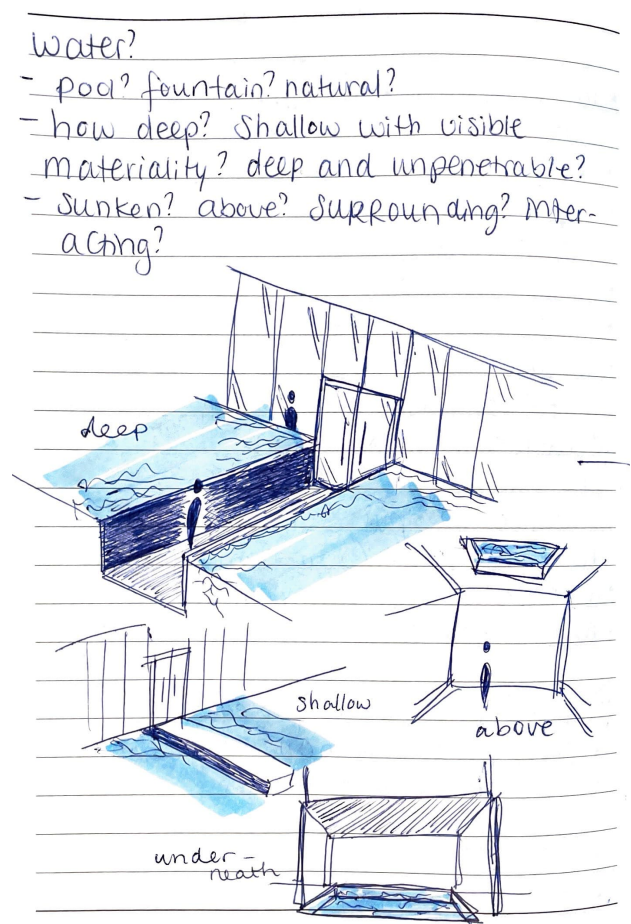 Water?
- pool? fountain? natural?
- how deep? Shallow with visible
materiality? deep and unpenetrable?
- Sunken? above? Surrounding? Inter-
acting?
deep
shallow
above
under-
neath